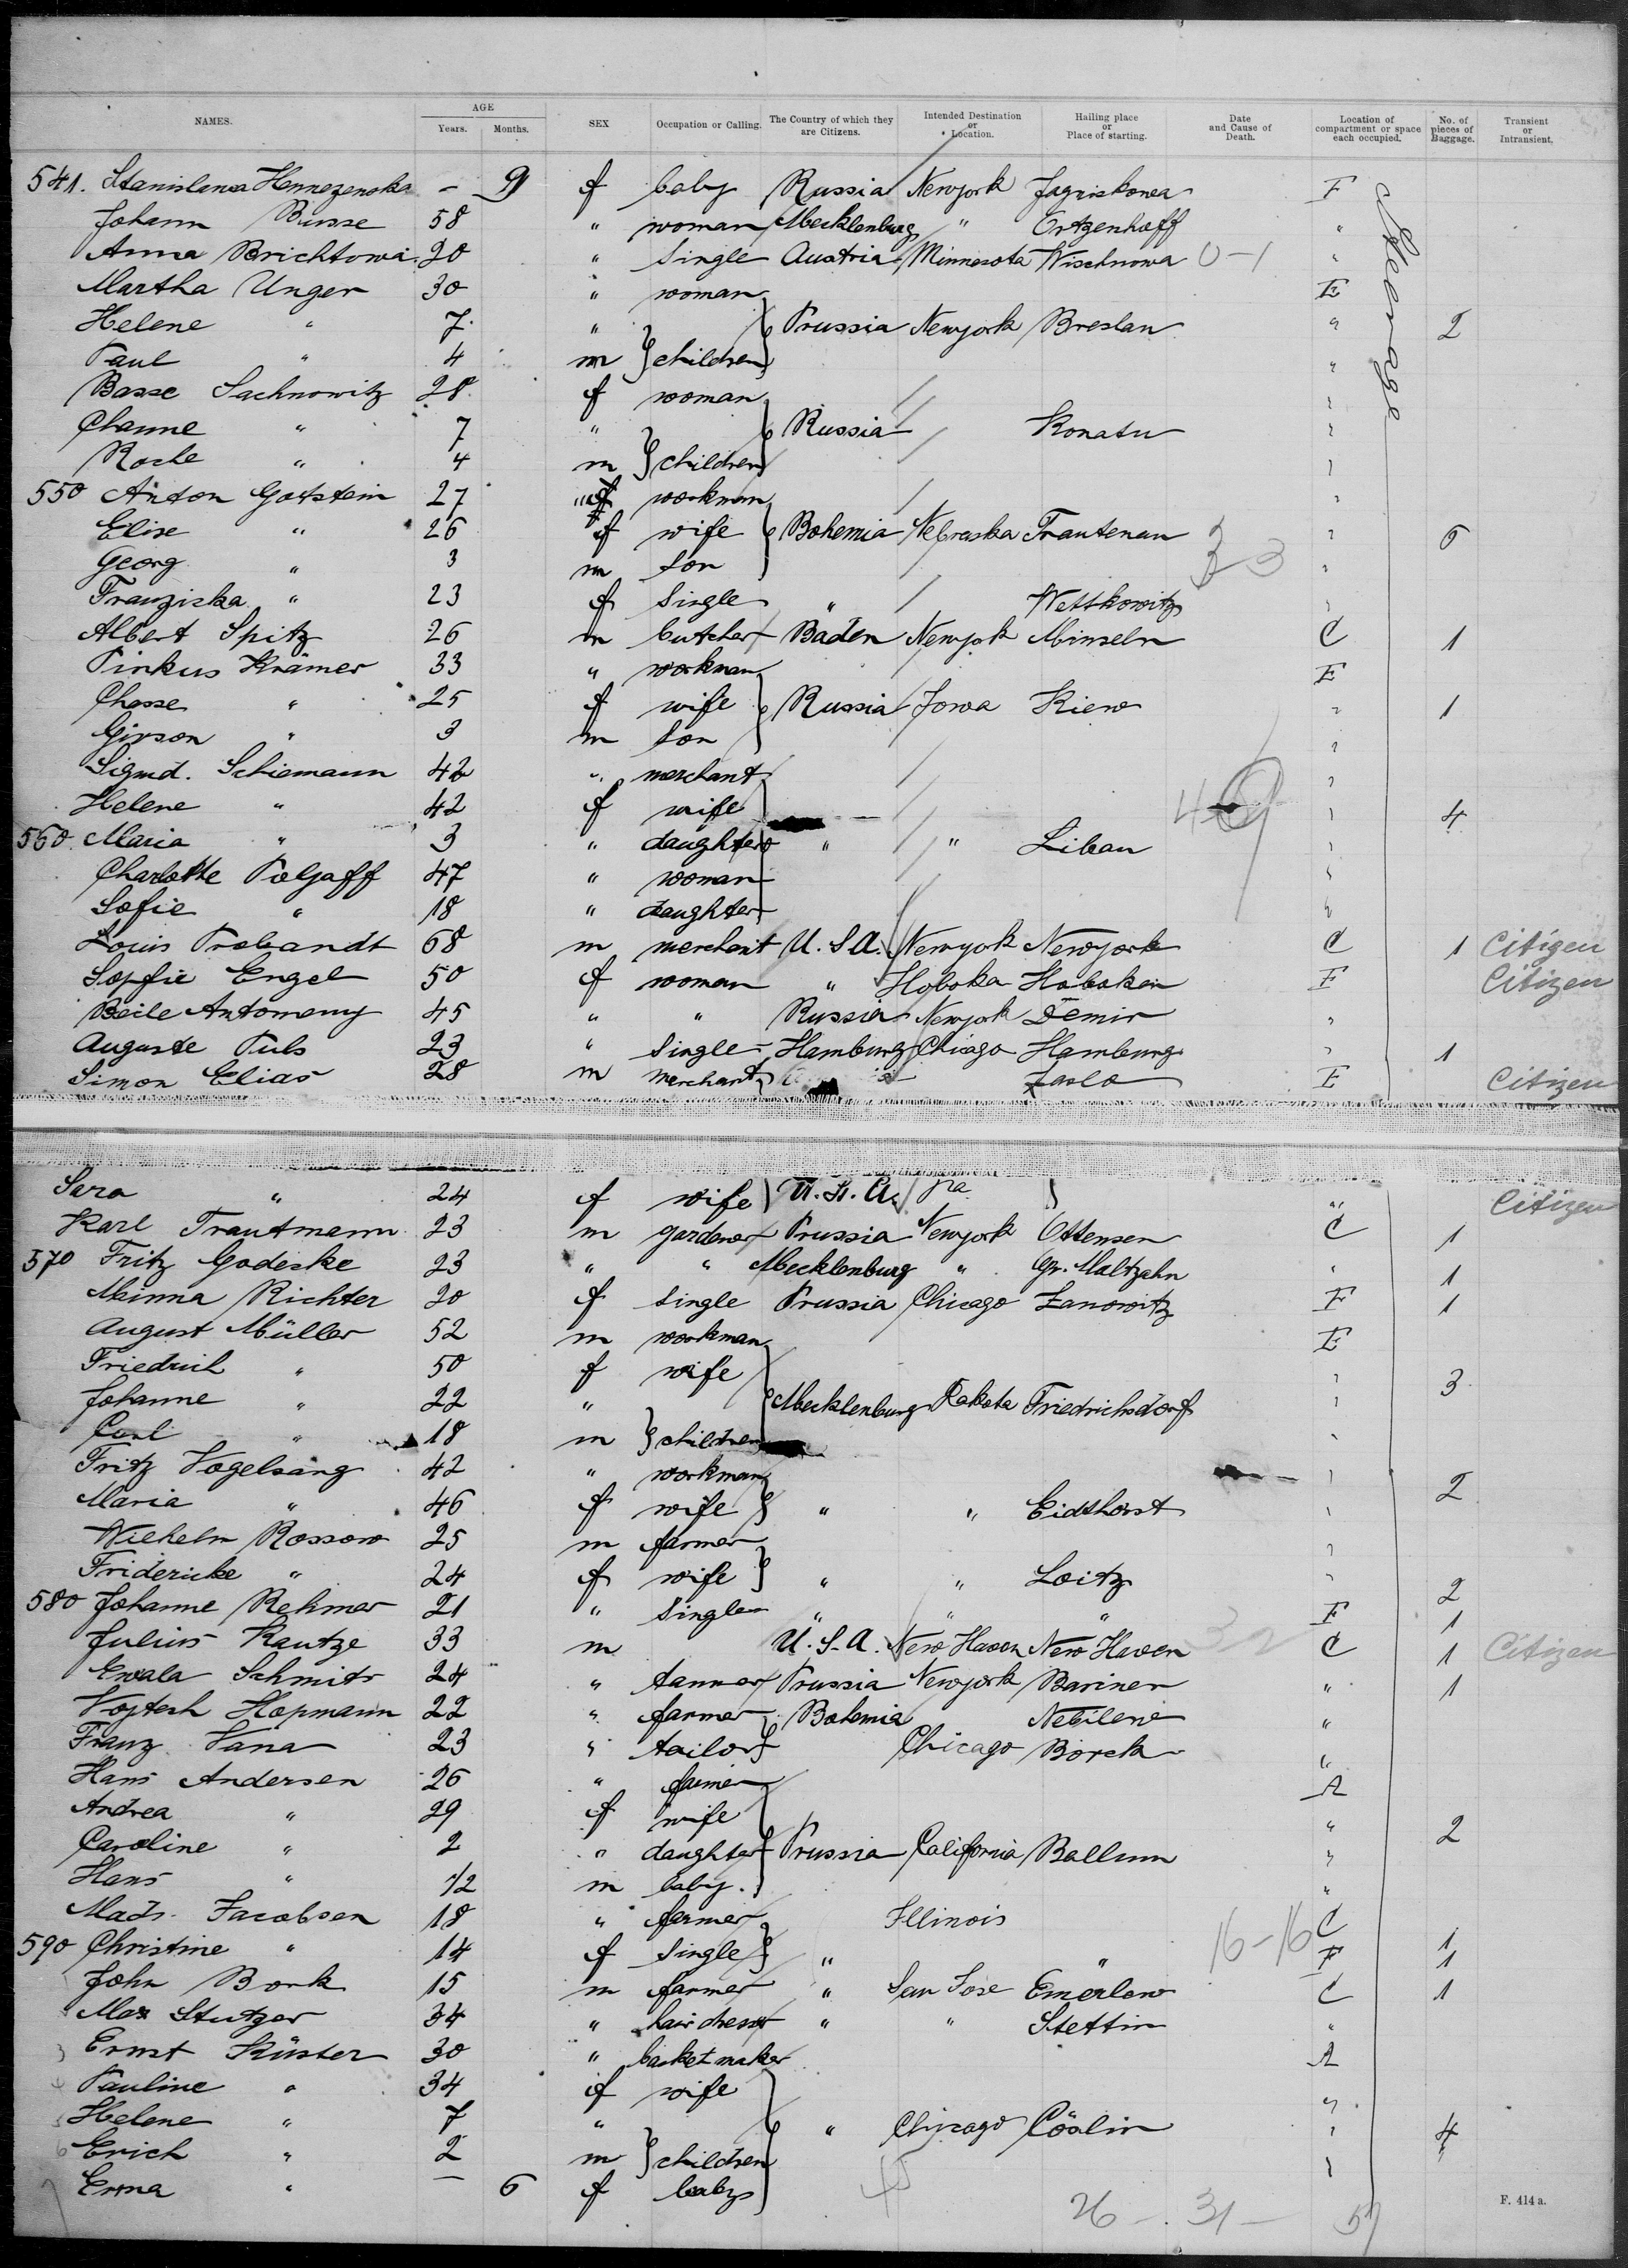 NAMES. AGE Years. Months. SEX Occupation or Calling. The Country of which they are Citizens. Intended Destination or Location. Hailing place or Place of starting. Date and Cause of Death. Location of compartment or space each occupied. No. of pieces of Baggage. Transient or Intransient.
541. Stanislawa - 9 f baby Russia Newyork F Steerage
Johann Busse 58 " woman Mecklenburg " Ortzenhoff "
Anna Brichtowa 20 " Single Austria Minnesota Wischnowa 0-1 "
Martha Unger 30 " woman E
Helene " 7 " Prussia Newyork Breslau " 2
Paul " 4 m } children "
Basse Sachnowitz 28 f woman "
Channe " 7 " Russia Konatu "
Roche " 4 m } children "
550 Anton Gotstein 27 workman "
Elise " 26 f wife Bohemia Nebraska Trautenau " 6
Georg " 3 m son 3 "
Franziska " 23 f Single " Wettkowitz "
Albert Spitz 26 m butcher Baden Newyok Minseln C 1
Pinkus Krämer 33 " workman E
Chasse " 25 f wife Russia Iowa Kiew " 1
Girson " 3 m son "
Sigmd. Schiemann 42 " merchant "
Helene " 42 f wife " 4
560. Maria " 3 " daughter " " Libau "
Charlotte Polgaff 47 " woman "
Sofie " 18 " daughter "
Louis Probandt 68 m merchant U.S.A. Newyok Newyork C 1 Citizen
Sopfie Engel 50 f woman " Hoboka Hoboken F Citizen
Beile Antomeny 45 " " Russia Newyok Demir "
Auguste Puls 23 " Single Hamburg Chicago Hamburg " 1
Simon Elias 28 m merchant Jaslo E Citizen
Sara " 24 f wife U.S.A. Pa " Citizen
Karl Trautmann 23 m gardener Prussia Newyork Ottensen C 1
570 Fritz Godeske 23 " " Mecklenburg " Gr. Maltzahn " 1
Minna Richter 20 f Single Prussia Chicago Zanowitz F 1
August Müller 52 m workman E
Friedrich " 50 f wife " 3
Johanne " 22 " Mecklenburg Dakota Friedrichsdorf "
Carl " 18 m } children "
Fritz Vogelsang 42 " workman " 2
Maria " 46 f wife } " " Eidthorst "
Wilhelm Rossow 25 m farmer "
Fridericke " 24 f wife } " " Loitz " 2
580 Johanne Rehmer 21 " Single " " " F 1
Julius Kautze 33 m U.S.A. New Haven New Haven C 1 Citizen
Ewala Schmitz 24 " tanner Prussia Newyork Barinen " 1
Vojtech Hopmann 22 " farmer Bohemia Nebilene "
Franz Vana 23 " tailor Chicago Borek "
Hans Andersen 26 " farmer A
Andrea " 29 f wife " 2
Caroline " 2 " daughter Prussia California Ballum "
Hans " 1/2 m baby "
Mads Jacobsen 18 " farmer Illinois C 1
590 Christine " 14 f Single } " " 16-16 F 1
John Bork 15 m farmer " San Jose Emerlew C 1
Max Stutzer 34 " hairdresser " " Stettin "
Ernst Küster 30 " basket maker A
Pauline " 34 f wife "
Helene " 7 " " Chicago Cöslin " 4
Erich " 2 m } children "
Erma " - 6 f baby
26 - 31 - 57
F. 414 a.